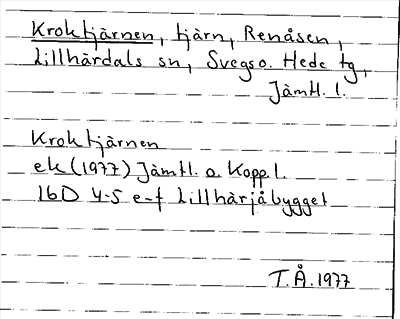 Kroktjärnen, tjärn, Renåsen,
Lillhärdals sn, Svegs o. Hede tg,
Jämtl. l.
Kroktjärnen
ek (1977) Jämtl. o. Kopp. l.
16D 4-5 e-f Lillhärjåbygget
T.Å. 1977